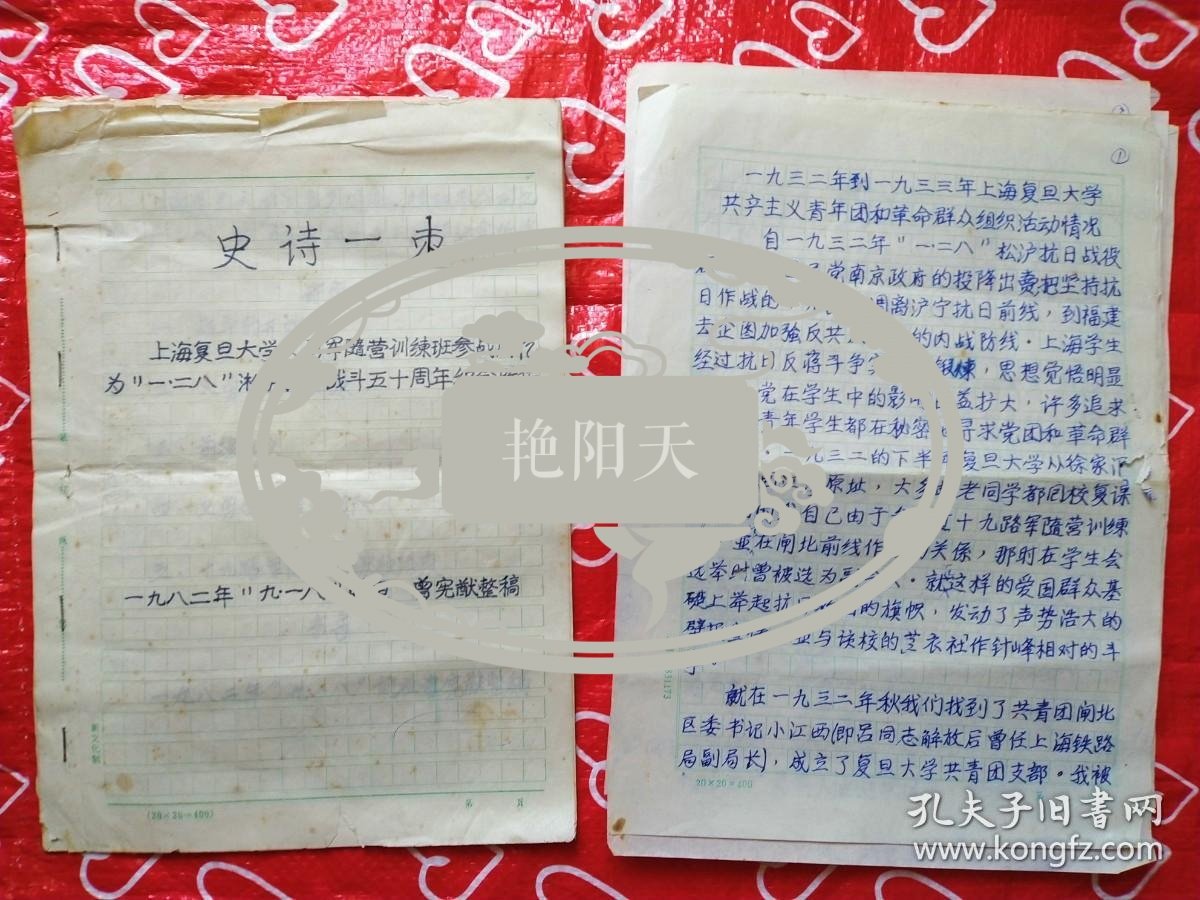 史诗一束
上海复旦大学 军随营训练班参战
为"一·二八"淞 战斗五十周年纪念
一九八二年"九·一八" 曾宪猷整稿
新文化制
(20×20=400)
第 页
①
一九三二年到一九三三年上海复旦大学
共产主义青年团和革命群众组织活动情况
自一九三二年"一·二八"松沪抗日战役
党南京政府的投降出卖把坚持抗
日作战的 调离沪宁抗日前线,到福建
去企图加强反共 的内战防线.上海学生
经过抗日反蒋斗争实 锻炼,思想觉悟明显
党在学生中的影响 益扩大,许多追求
青年学生都在秘密 寻求党团和革命群
.一九三二的下半 复旦大学从徐家汇
原址,大 老同学都回校复课
自己由于 十九路军随营训练
在闸北前线作 关係,那时在学生会
选举时曾被选为 .就这样的爱国群众基
础上举起抗日 的旗帜,发动了声势浩大的
与该校的 衣社作针峰相对的斗
争.
就在一九三二年秋我们找到了共青团闸北
区委书记小江西(即吕同志解放后曾任上海铁路
局副局长),成立了复旦大学共青团支部.我被
20×20=400
艳阳天
孔夫子旧书网
www.kongfz.com